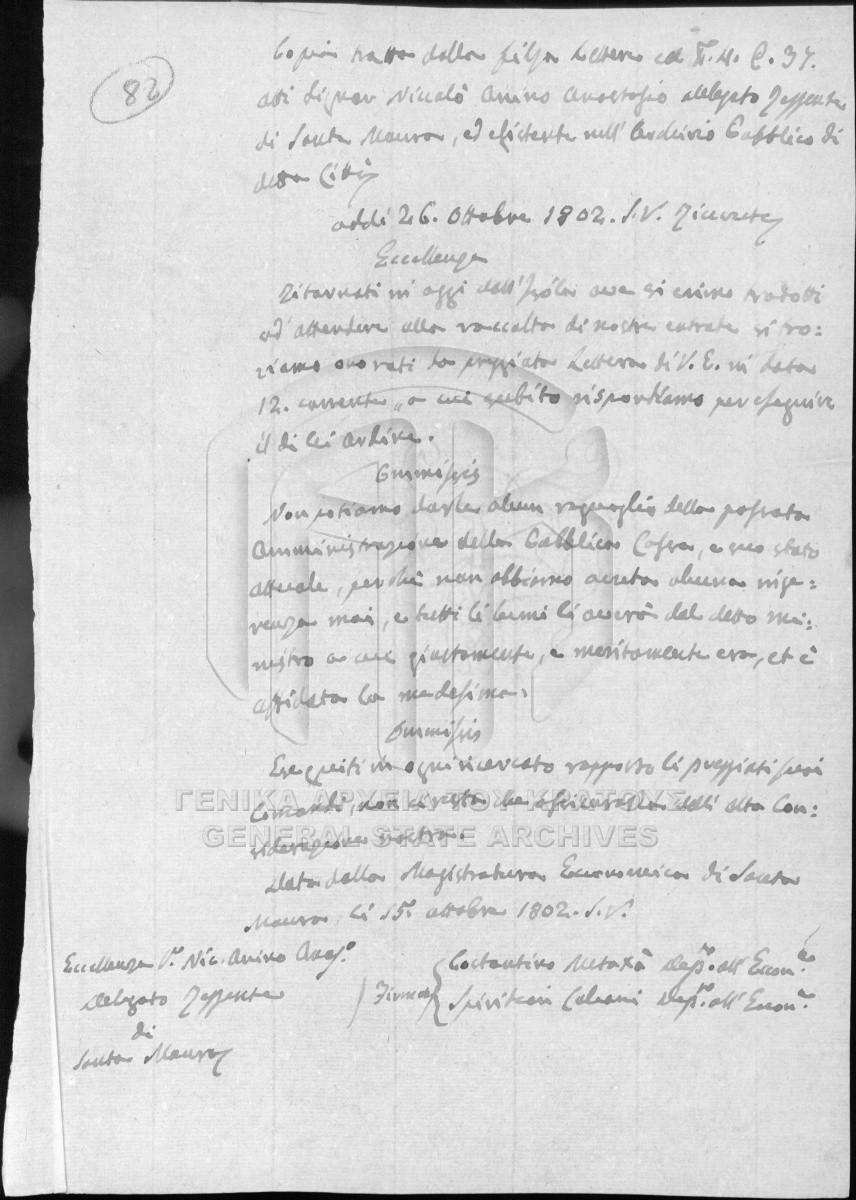 82
Copia tratta dalla filza Lettere ed N. C. 37.
atti Signor Niccolò Anino Anastasio delegato Reggente
di Santa Maura, ed esistente nell' Archivio Pubblico di
detta Città
addì 26. Ottobre 1802. S.V. Ricevuta
Eccellenza
Ritornati in oggi dall'Isola ove si erimo tradotti
ad' attendere alla raccolta di nostre entrate si tro=
viamo onorati da preggiata Lettera di V. E. in data
12. corrente, a cui subito rispondiamo per eseguire
il di lei ordine.
Ommissis
Non potiamo darle alcun ragguaglio della passata
Amministrazione della Pubblica Cassa, e suo stato
attuale, perchè non abbiamo avuta alcuna inge=
renza mai, e tutti li lumi li averà dal detto mi=
nistro a cui giustamente, e meritamente era, et è
affidata la medesima.
Ommissis
Eseguiti in ogni ricercato rapporto li preggiati suoi
Comandi, non ci resta che assicurarla dell' alta Con=
siderazione nostra.
ΓΕΝΙΚΑ ΑΡΧΕΙΑ ΤΟΥ ΚΡΑΤΟΥΣ
GENERAL STATE ARCHIVES
Data dalla Magistratura Economica di Santa
Maura li 15. ottobre 1802. S.V.
Eccellenza Nic. Anino Anas.o
Delegato Reggente
di
Santa Maura
Firmati
Costantino Metaxà Dep. all' Econ.
Spiridion Dep. all' Econ.